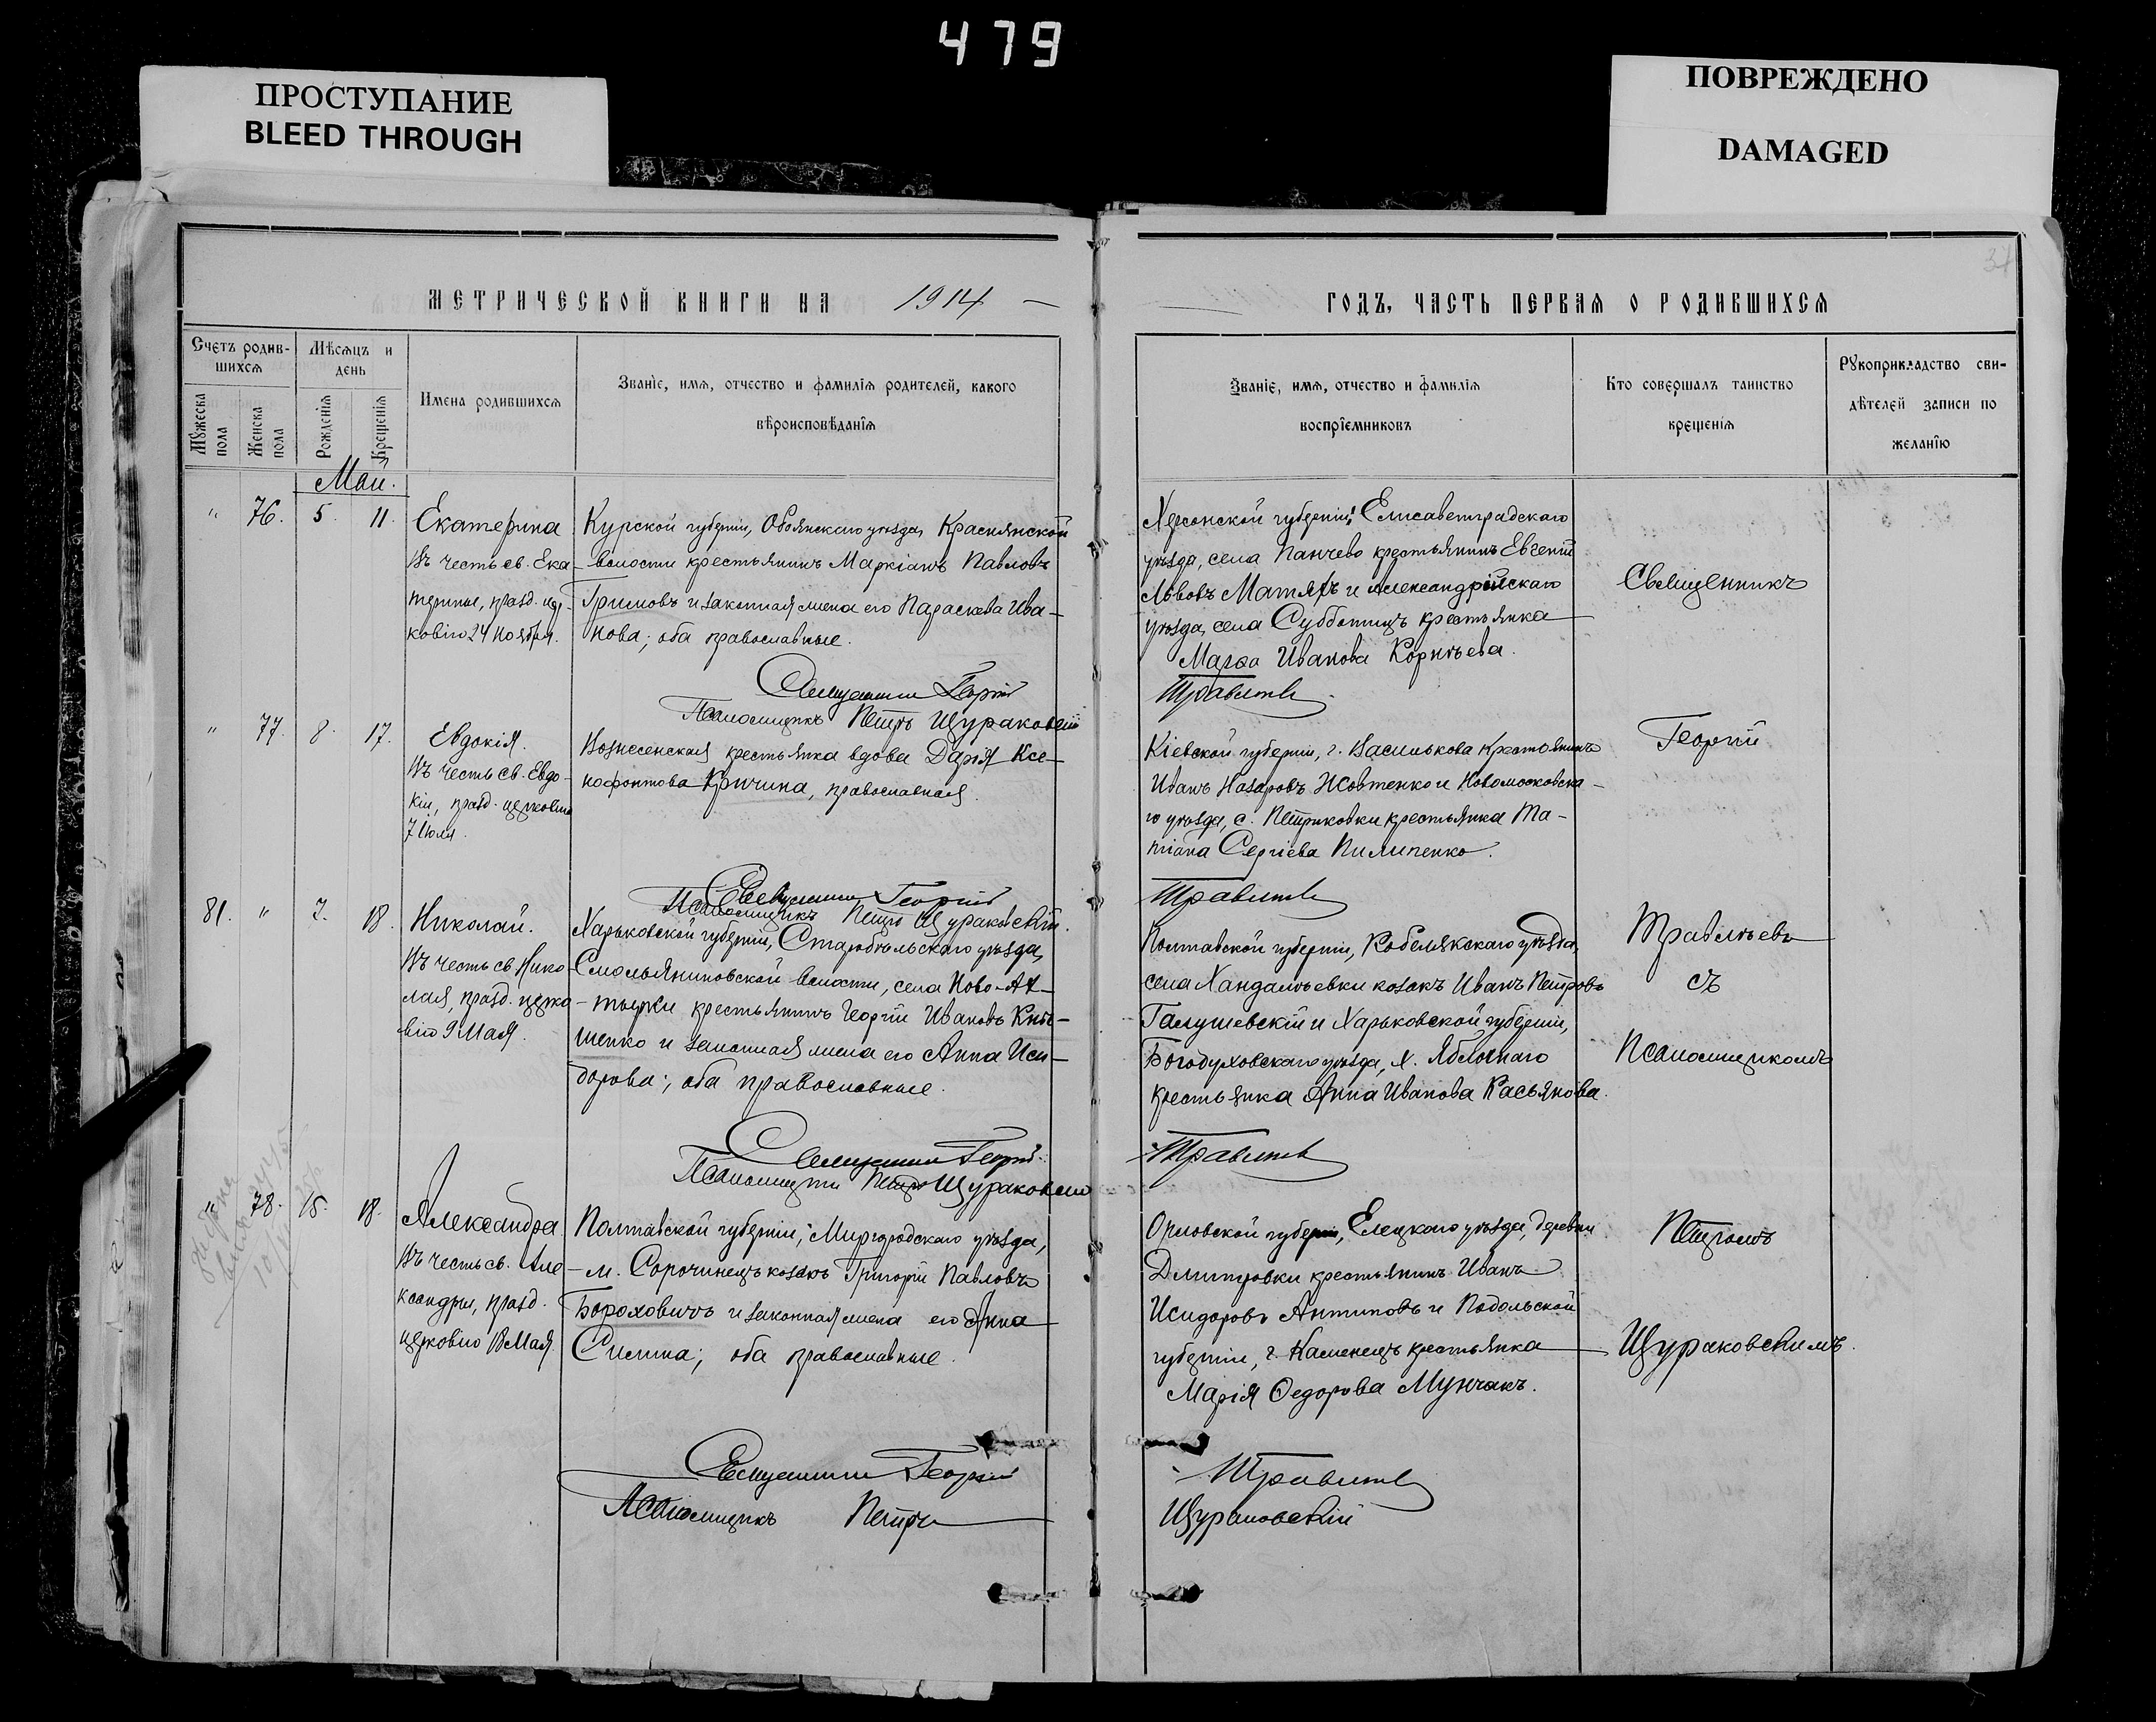 479
ПРОСТУПАНИЕ
BLEED THROUGH
ПОВРЕЖДЕНО
DAMAGED
37
МЕТРИЧЕСКОЙ КНИГИ НА 1914
ГОДЪ, ЧАСТЬ ПЕРВАЯ О РОДИВШИХСЯ
Счетъ родив-
шихся
Мѣсяцъ и
день
Мужеска
пола
Женска
пола
Рожденія
Крещенія
Имена родившихся
Званіе, имя, отчество и фамилія родителей, какого
вѣроисповѣданія
Званіе, имя, отчество и фамилія
воспріемниковъ
Кто совершалъ таинство
крещенія
Рукоприкладство сви-
дѣтелей записи по
желанію
Май.
" 76. 5. 11.
Екатерина
Въ честь св. Ека-
терины, празд. цер-
ковію 24 Ноября.
Курской губерніи, Обоянскаго уѣзда, Краснянской
волости крестьянинъ Маркіанъ Павловъ
Гримовъ и законная жена его Параскева Ива-
нова; оба православные.
Херсонской губерніи, Елисаветградскаго
уѣзда, села Панчево крестьянинъ Евгеній
Львовъ Матяхъ и Александрійскаго
уѣзда, села Субботицъ крестьянка
Марѳа Иванова Корнѣева.
Священникъ Георгій
Травлѣевъ
Псаломщикъ Петръ Щураковскій
" 77. 8. 17.
Евдокія.
Въ честь св. Евдо-
кіи, празд. церковію
7 Іюля.
Вознесенская крестьянка вдова Дарія Ксе-
нофонтова Кричина, православная.
Кіевской губерніи, г. Василькова крестьянинъ
Иванъ Назаровъ Жовтенко и Новомосковска-
го уѣзда, с. Петриковки крестьянка Та-
тіана Сергіева Пилипенко.
Священникъ Георгій
Травлѣевъ
Псаломщикъ Петръ Щураковскій.
81. " 7. 18.
Николай.
Въ честь св. Нико-
лая, празд. церко-
вію 9 Мая.
Харьковской губерніи, Старобѣльскаго уѣзда,
Смольяниновской волости, села Ново-Ах-
тырки крестьянинъ Георгій Ивановъ Кны-
шенко и законная жена его Анна Иси-
дорова; оба православные.
Полтавской губерніи, Кобелякскаго уѣзда,
села Хандалѣевки козакъ Иванъ Петровъ
Галушевскій и Харьковской губерніи,
Богодуховскаго уѣзда, х. Яблочнаго
крестьянка Анна Иванова Касьянова.
Священникъ Георгій
Травлѣевъ
Псаломщикъ Петръ Щураковскій
" 78. 15. 18.
Александра
Въ честь св. Але-
ксандры, празд.
церковію 18 Мая.
Полтавской губерніи, Миргородскаго уѣзда,
м. Сорочинецъ козакъ Григорій Павловъ
Бороховичъ и законная жена его Анна
Силина; оба православные.
Орловской губерніи, Елецкаго уѣзда, деревни
Дмитровки крестьянинъ Иванъ
Исидоровъ Антиповъ и Подольской
губерніи, г. Каменецъ крестьянка
Марія Ѳедорова Мунчакъ.
Священникъ
Георгій
Травлѣевъ
съ
Псаломщикомъ
Петромъ
Щураковскимъ.
Священникъ Георгій
Травлѣевъ
Псаломщикъ Петръ
Щураковскій